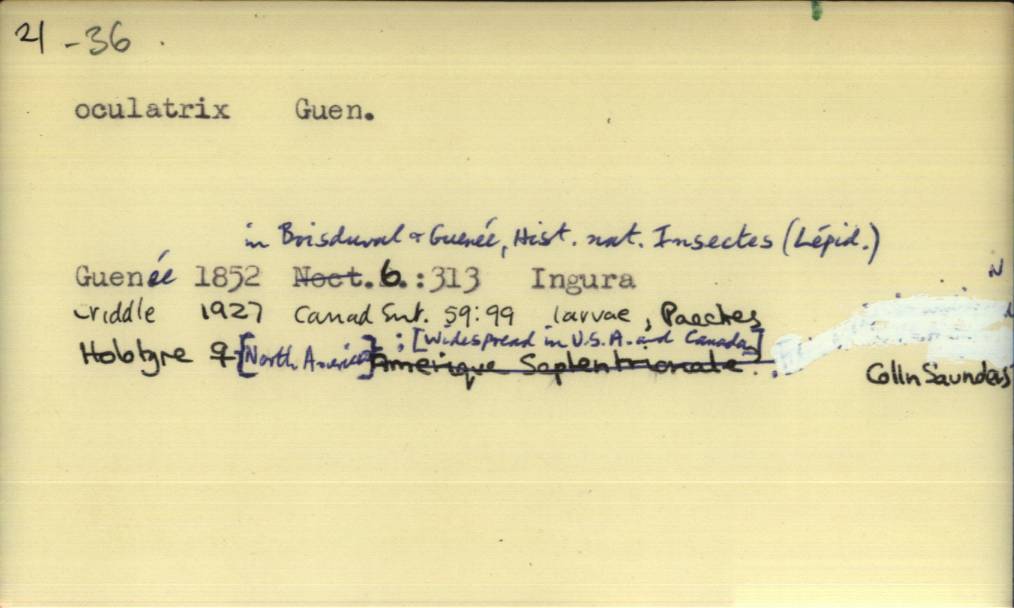 21 -36.
oculatrix Guen.
in Boisduval & Guenée, Hist. nat. Insectes (Lépid.)
Guenée 1852 Noct. 6.:313 Ingura
Criddle 1927 Canad Ent. 59:99 larvae, Paectes
Holotype ♀ [North America] Amerique Septentrionale ; [Widespread in U.S.A. and Canada]
Colin Saunders